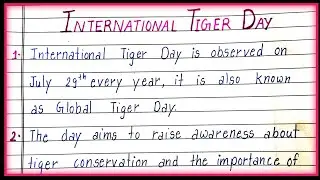 INTERNATIONAL TIGER DAY
1. International Tiger Day is observed on
July 29th every year, it is also known
as Global Tiger Day.
2. The day aims to raise awareness about
tiger conservation and the importance of